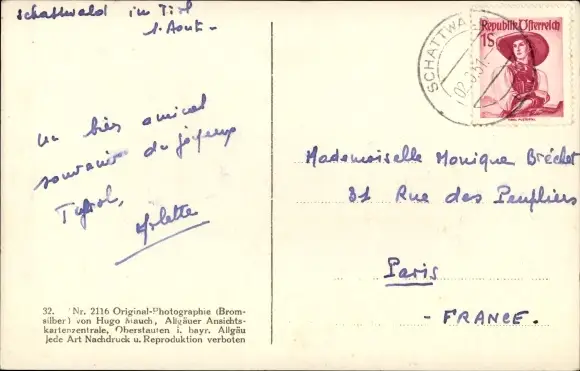 Schattwald im Tirol
1. Aout -
un bien amical
souvenir du joyeux
Tyrol,
Arlette
32. Nr. 2116 Original-Photographie (Brom-
silber) von Hugo Mauch, Allgäuer Ansichts-
kartenzentrale, Oberstaufen i. bayr. Allgäu
Jede Art Nachdruck u. Reproduktion verboten
SCHATTWA
02.8.51
Republik Österreich
1S
Mademoiselle Monique Bréchet
31 Rue des Peupliers
Paris
- FRANCE.